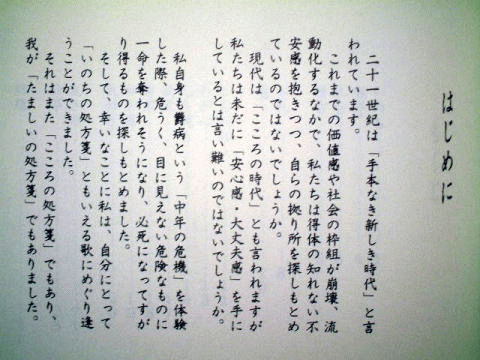 はじめに
二十一世紀は「手本なき新しき時代」と言
われています。
これまでの価値感や社会の枠組が崩壊、流
動化するなかで、私たちは得体の知れない不
安感を抱きつつ、自らの拠り所を探しもとめ
ているのではないでしょうか。
現代は「こころの時代」とも言われますが
私たちは未だに「安心感・大丈夫感」を手に
しているとは言い難いのではないでしょうか。
私自身も欝病という「中年の危機」を体験
した際、危うく、目に見えない危険なものに
一命を奪われそうになり、必死になってすが
り得るものを探しもとめました。
そして、幸いなことに私は、自分にとって
「いのちの処方箋」ともいえる歌にめぐり逢
うことができました。
それはまた「こころの処方箋」でもあり、
我が「たましいの処方箋」でもありました。